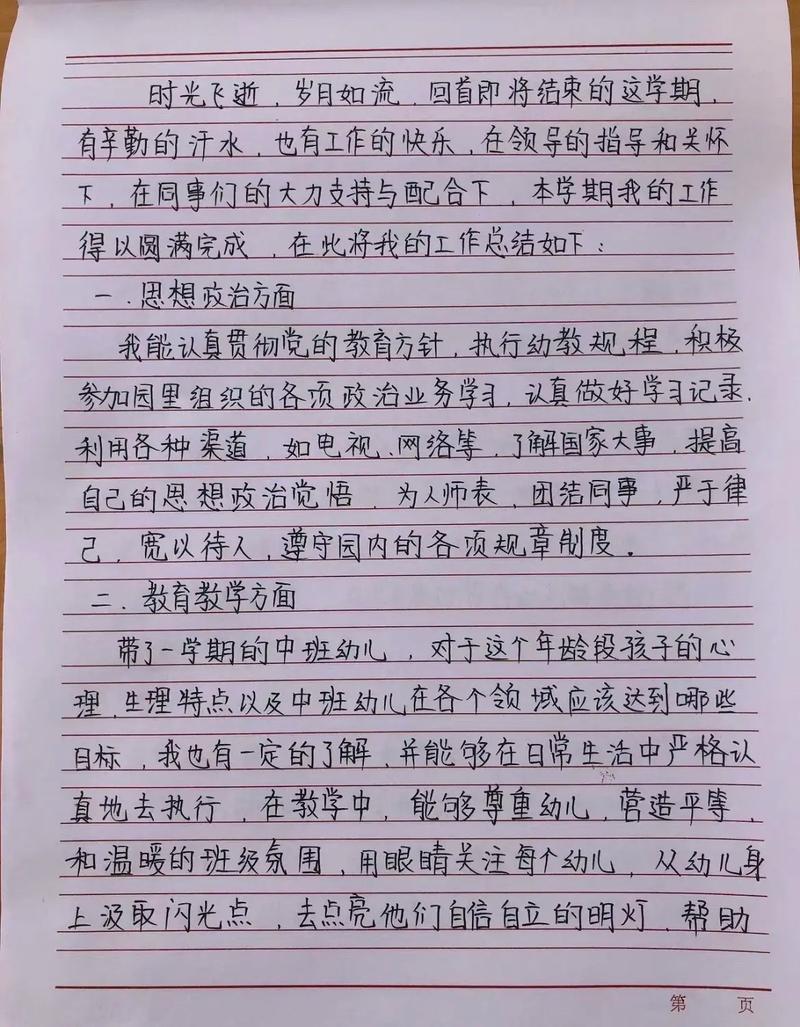 时光飞逝，岁月如流，回首即将结束的这学期，
有辛勤的汗水，也有工作的快乐，在领导的指导和关怀
下，在同事们的大力支持与配合下，本学期我的工作
得以圆满完成，在此将我的工作总结如下：
一．思想政治方面
我能认真贯彻党的教育方针，执行幼教规程，积极
参加园里组织的各项政治业务学习，认真做好学习记录．
利用各种渠道，如电视、网络等，了解国家大事，提高
自己的思想政治觉悟，为人师表，团结同事，严于律
己，宽以待人，遵守园内的各项规章制度。
二．教育教学方面
带了一学期的中班幼儿，对于这个年龄段孩子的心
理、生理特点以及中班幼儿在各个领域应该达到哪些
目标，我也有一定的了解，并能够在日常生活中严格认
真地去执行，在教学中，能够尊重幼儿，营造平等，
和温暖的班级氛围，用眼睛关注每个幼儿，从幼儿身
上汲取闪光点，去点亮他们自信自立的明灯，帮助
第 页